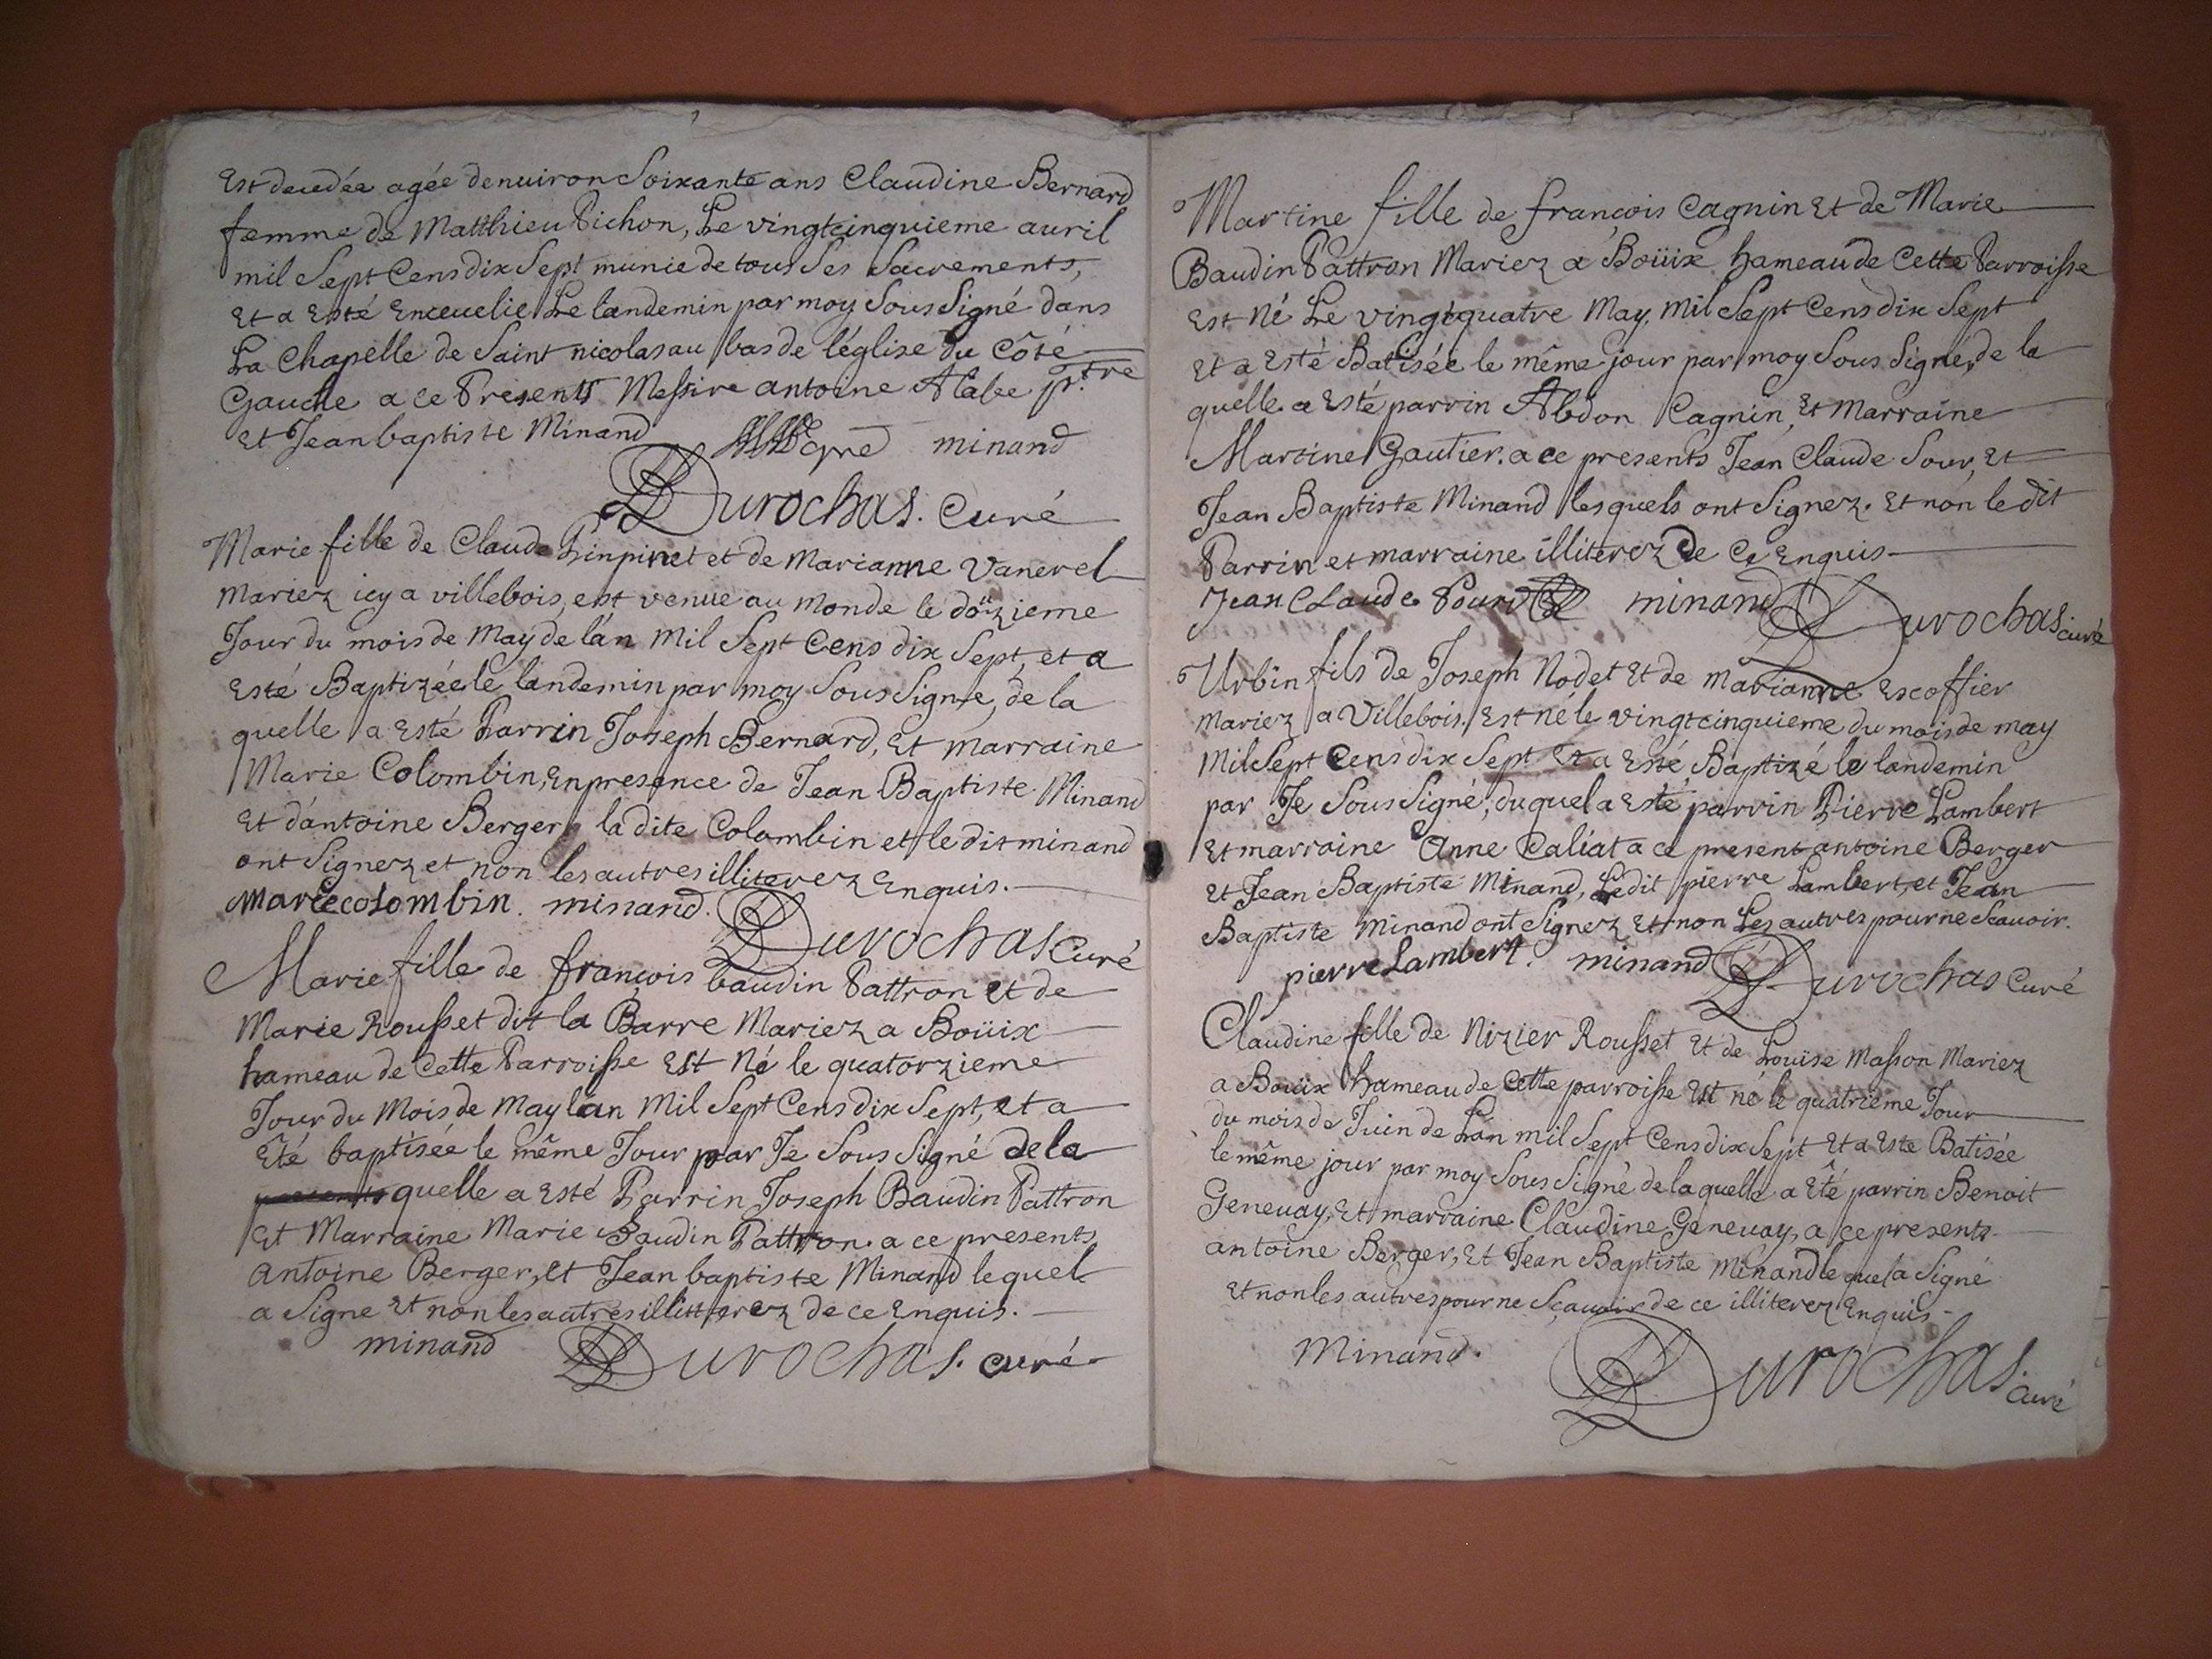 Est decedée agée denuiron Soixante ans Claudine Bernard
femme de Matthieu Pichon, Le vingtcinquieme auril
mil Sept Cens dix Sept munie de tous Ses Sacrements,
Et a Esté Enceuelie Le landemin par moy Sous Signé dans
La Chapelle de Saint nicolas au bas de l'église du Côté
Gauche a ce Presents Messire antoine Alabe ptre
et Jean baptiste Minand
minand
Durochas. Curé
Marie fille de Claude Pinpinet et de Marianne Vanerel
Mariez icy a villebois, est venue au monde le doüzieme
Jour du mois de May de l'an Mil Sept Cens dix Sept, et a
Esté Baptizée le landemin par moy Sous Signé, de la
quelle a Esté Parrin Joseph Bernard, Et Marraine
Marie Colombin, En presence de Jean Baptiste Minand
Et d'antoine Berger, la dite Colombin et le dit minand
ont Signez et non les autres illiterez Enquis.
Marie colombin. minand.
Durochas Curé
Marie fille de françois baudin Pattron et de
Marie Rousset dit la Barre Mariez a Boüix
hameau de Cette Parroisse Est Né le quatorzieme
Jour du Mois de May lan Mil Sept Cens dix Sept, et a
Eté baptisée le même Jour par Je Sous Signé de la
quelle a Esté Parrin Joseph Baudin Pattron
Et Marraine Marie Baudin Pattron. a ce presents
Antoine Berger, et Jean baptiste Minand lequel
a Signe Et non les autres illitterez de ce Enquis.
minand Durochas. curé
Martine fille de françois Cagnin Et de Marie
Baudin Pattron Mariez a Boüix hameau de Cette Parroisse
Est Né Le vingtquatre May. Mil Sept Cens dix Sept
Et a Esté Batisée le même jour par moy Sous Signé, de la
quelle a Esté parrin Abdon Cagnin, Et Marraine
Martine Gautier. a ce presents Jean Claude Pour, Et
Jean Baptiste Minand lesquels ont Signez. Et non le dit
Parrin et marraine illiterez De Ce Enquis
Jean Claude Pour minand Durochas curé
Urbin fils de Joseph Nodet Et de Marianne Escoffier
Mariez a Villebois. Est né le vingtcinquieme du mois de may
Mil Sept Cens dix Sept Et a Esté Baptizé le landemin
par Je Sous Signé, duquel a Esté parrin Pierre Lambert
Et marraine Anne Caliat a ce present antoine Berger
Et Jean Baptiste Minand, Ledit pierre Lambert, et Jean
Baptiste Minand ont Signez Et non Les autres pour ne Scauoir.
pierre Lambert. minand Durochas Curé
Claudine fille de Nizier Rousset Et de Loüise Masson Mariez
a Boüix hameau de Cette parroisse Est né le quatrieme Jour
du mois de Juin de Lan mil Sept Cens dix Sept Et a Este Batisée
le même jour par moy Sous Signé de laquelle a Eté parrin Benoit
Geneuay, Et marraine Claudine Geneuay, a ce presents
antoine Berger, Et Jean Baptiste Minand lequel a Signé
Et non les autres pour ne Sçauoir de ce illiterez Enquis
Minand. Durochas. Curé